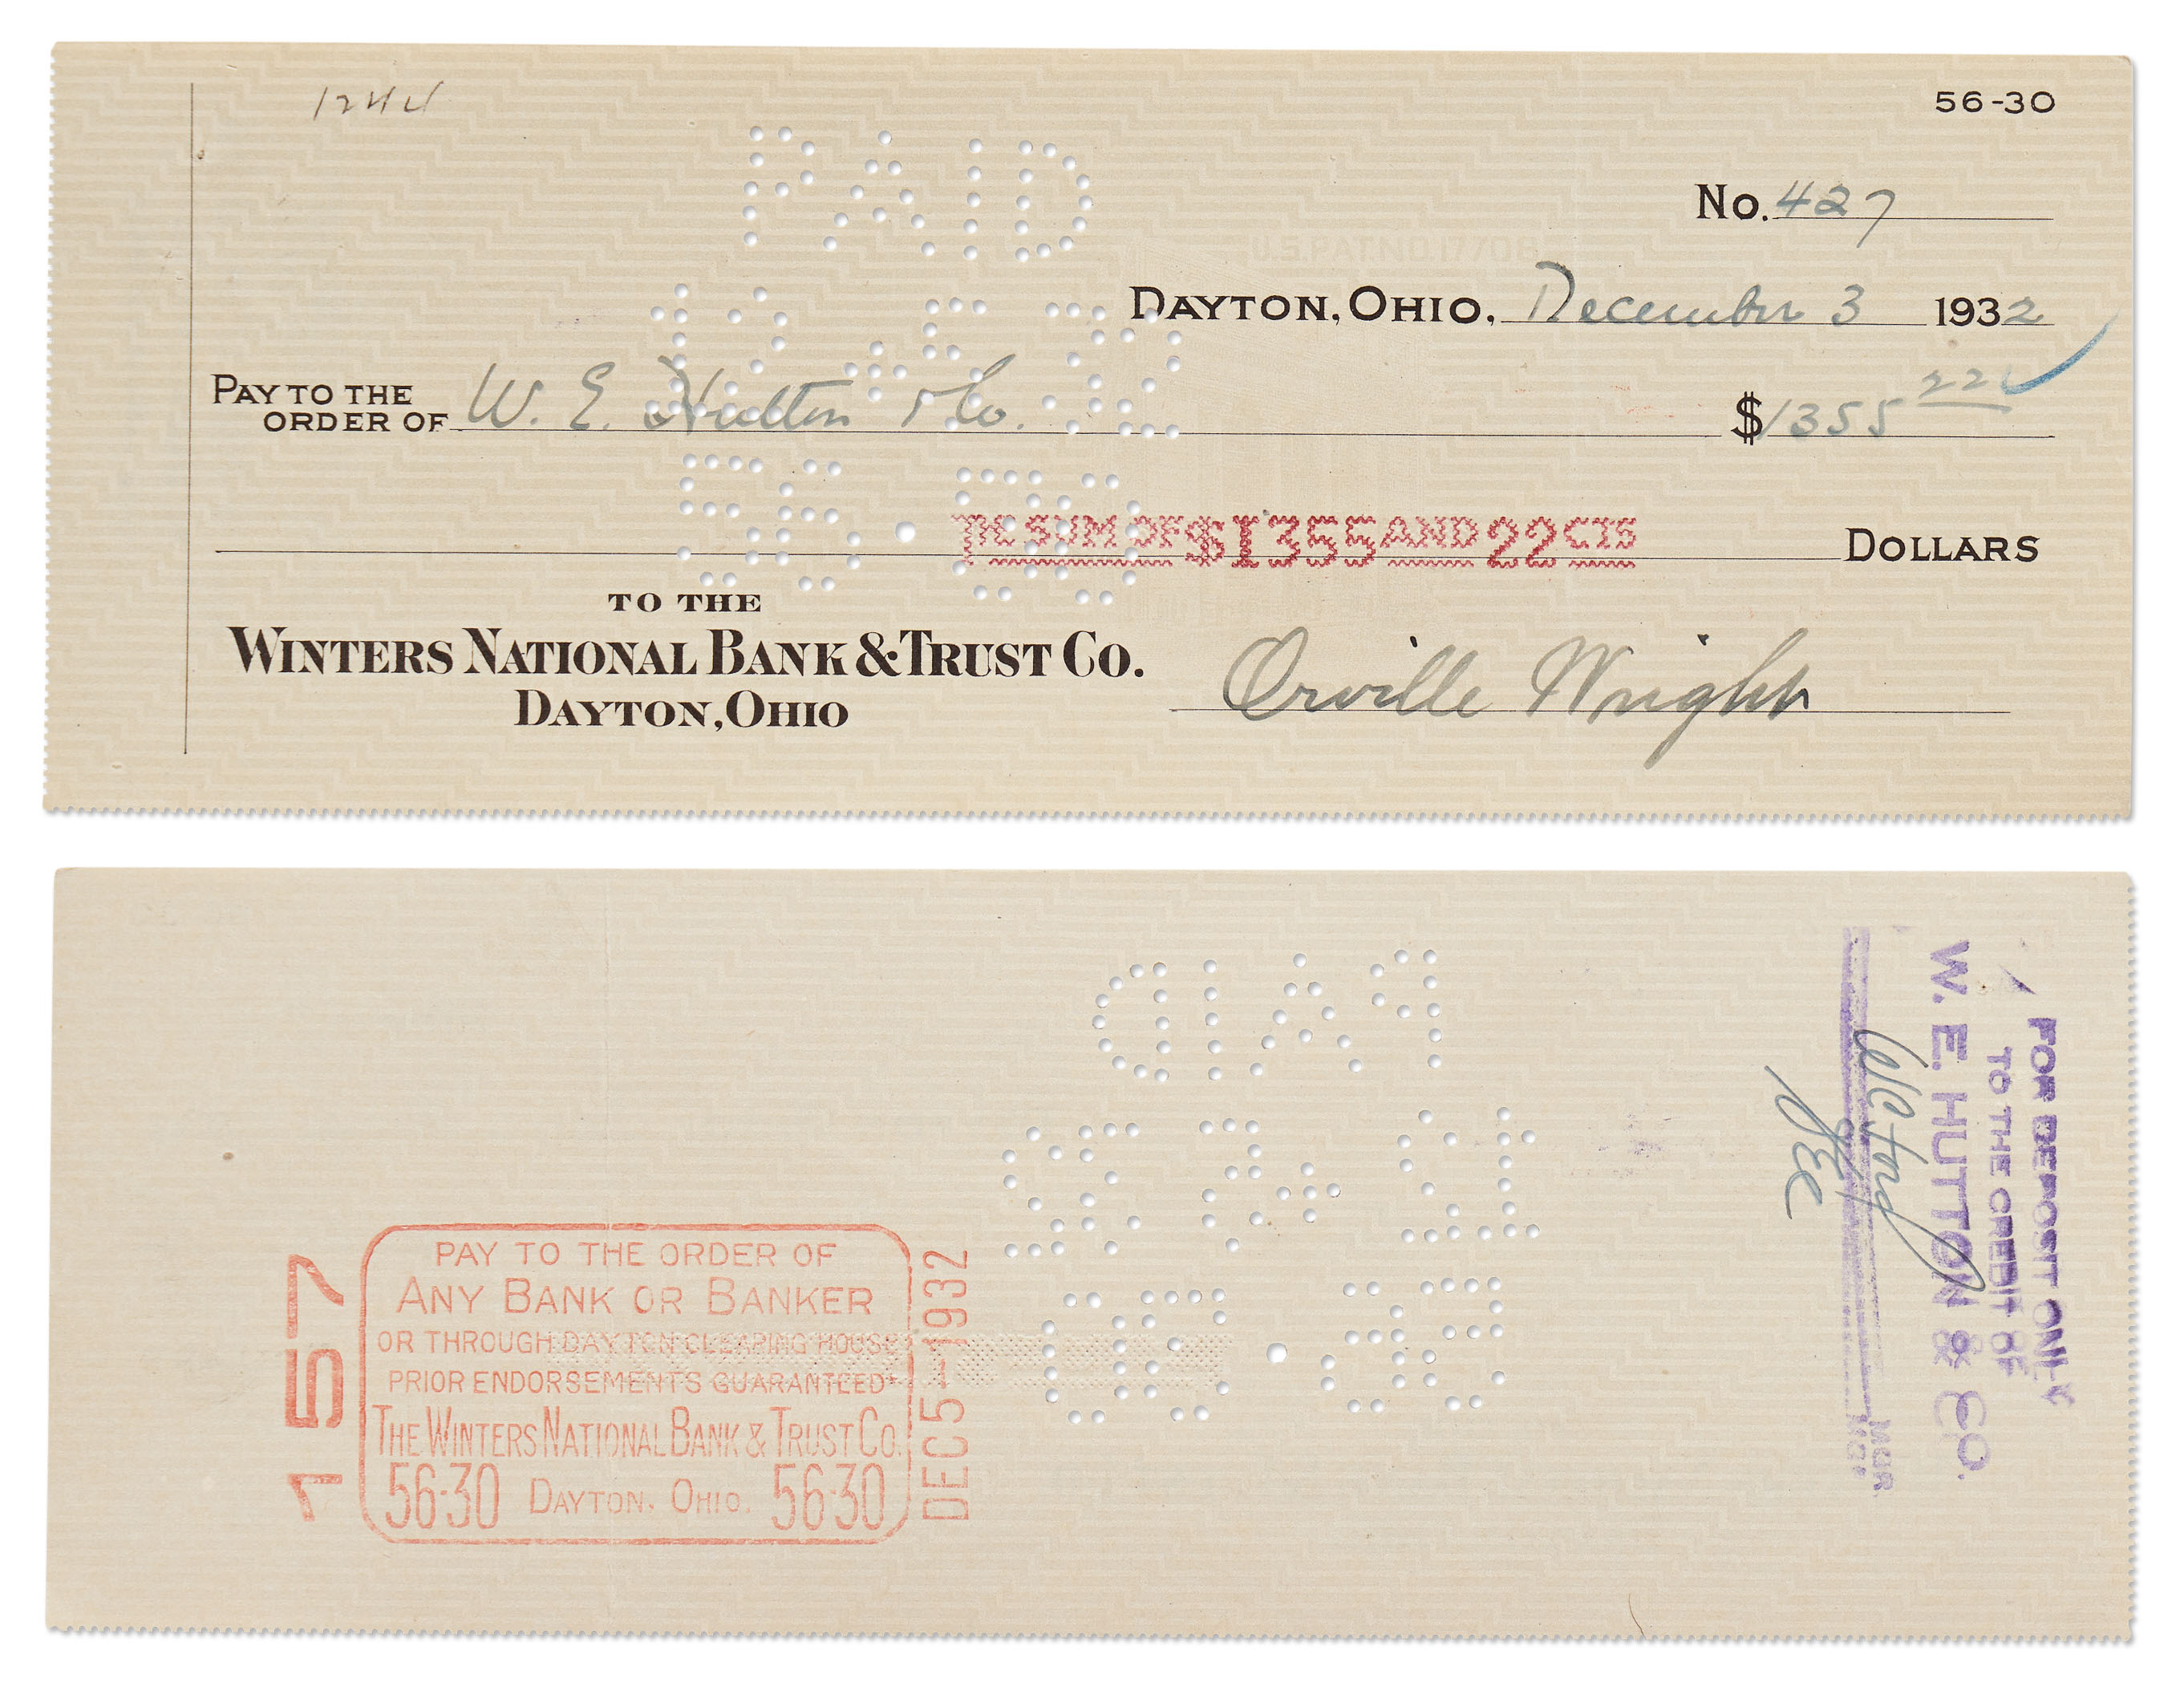 1244
56-30
PAID
No. 427
U.S.PAT.NO.17706
DAYTON, OHIO, December 3 1932
12·5·32
PAY TO THE ORDER OF W. E. Hutton & Co. $1355 22
56·30
THE SUM OF $1355 AND 22 CTS DOLLARS
TO THE
WINTERS NATIONAL BANK & TRUST CO.
DAYTON, OHIO
Orville Wright
PAID
12·5·32
56·30
FOR DEPOSIT ONLY
TO THE CREDIT OF
W. E. HUTTON & CO.
MGR.
757
PAY TO THE ORDER OF
ANY BANK OR BANKER
OR THROUGH DAYTON CLEARING HOUSE
PRIOR ENDORSEMENTS GUARANTEED
THE WINTERS NATIONAL BANK & TRUST CO.
56-30 DAYTON, OHIO. 56-30
DEC 5-1932